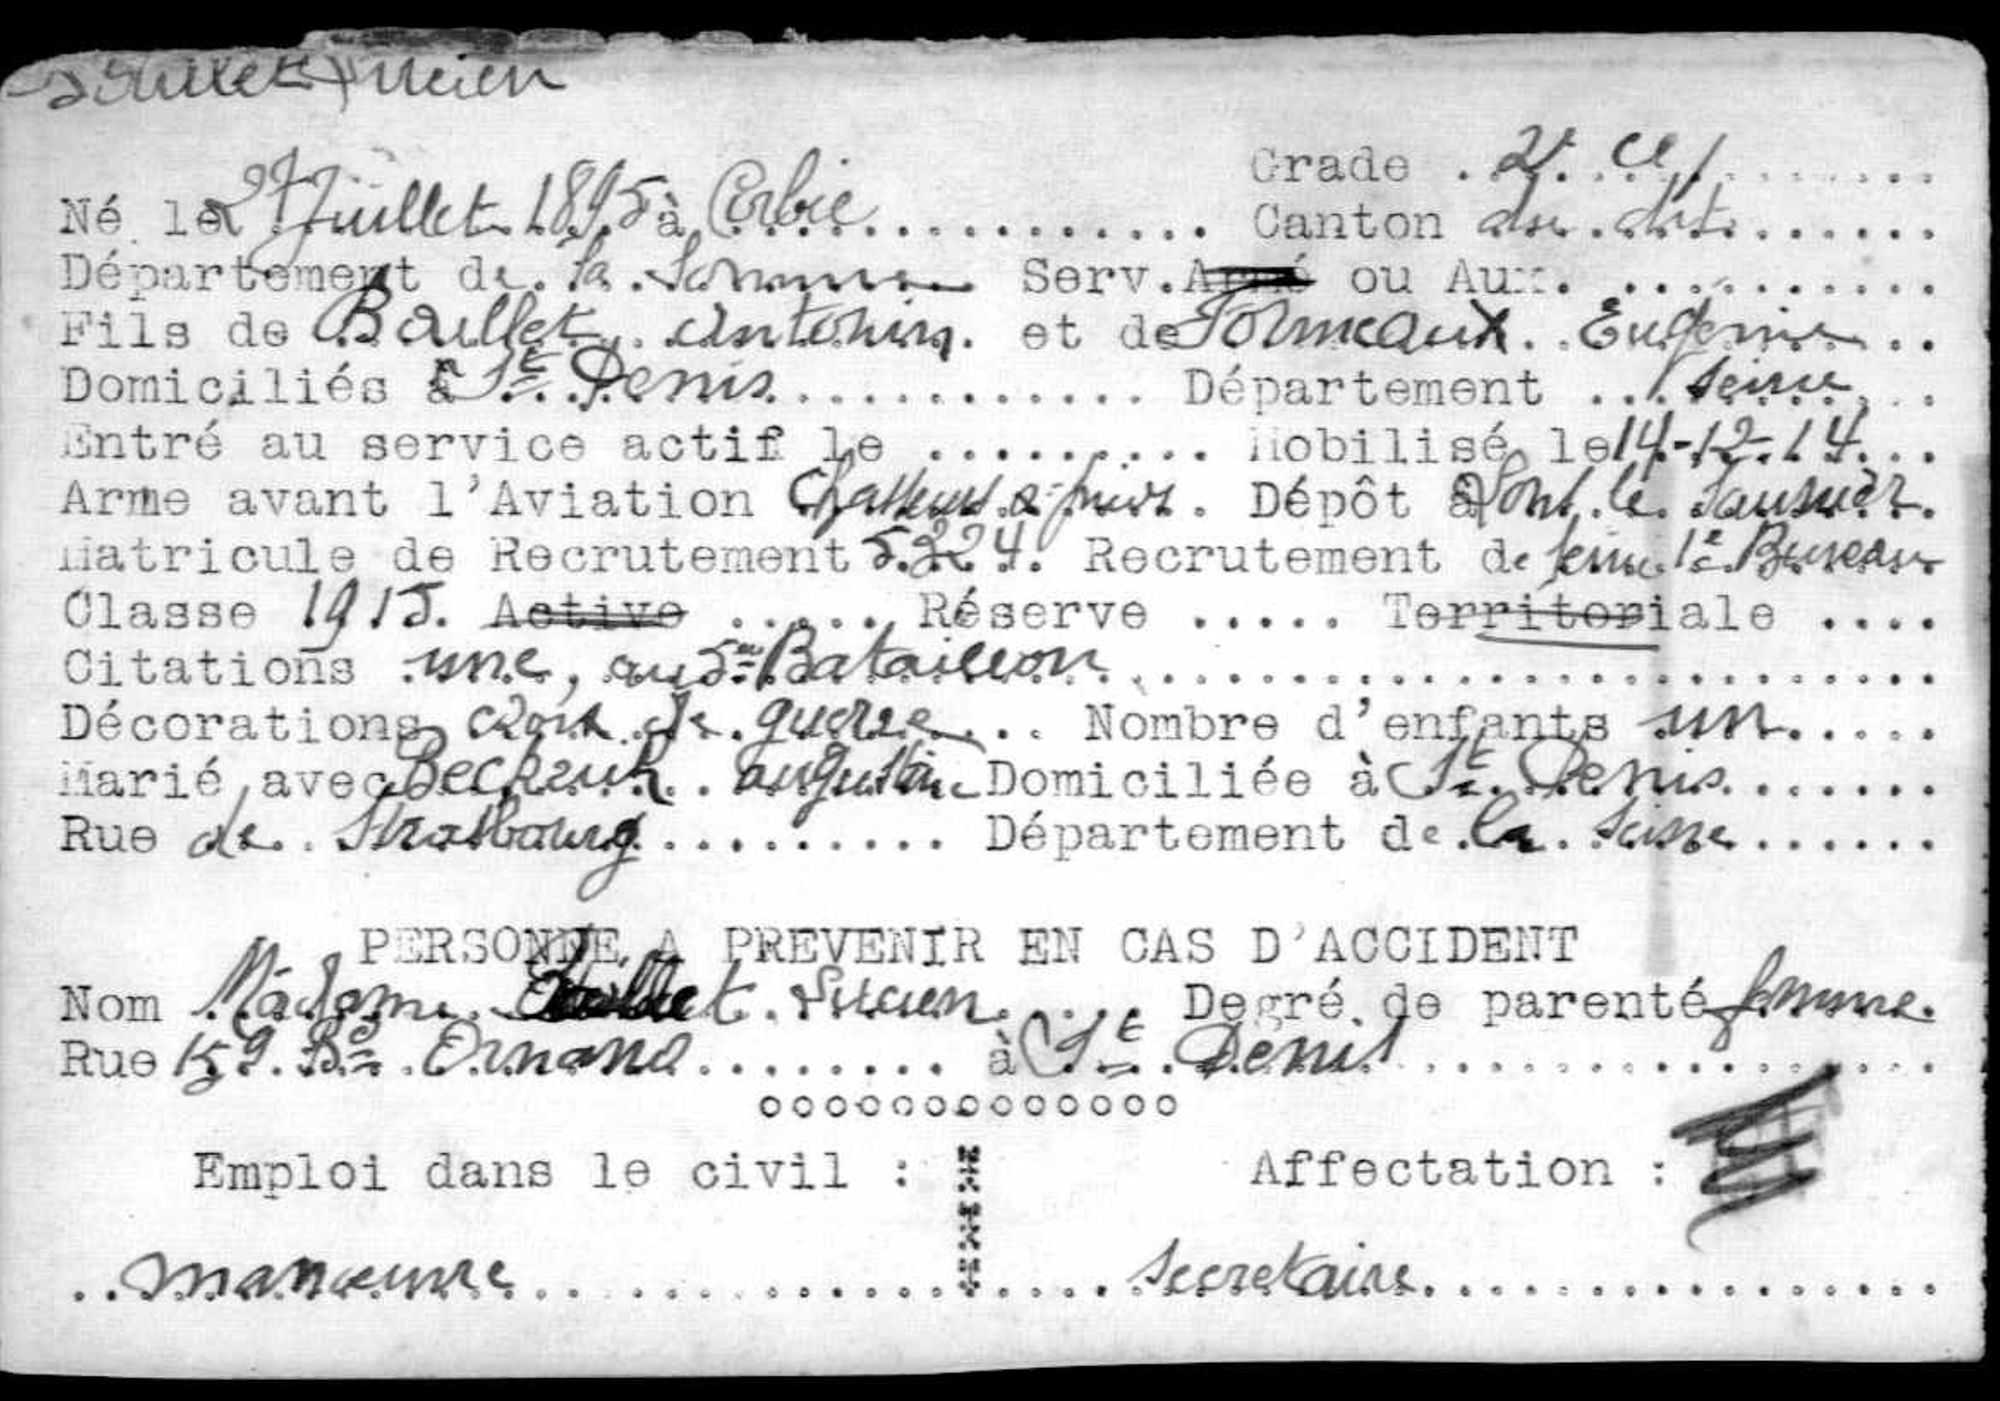 Baillet Lucien
Grade 2e Cl
Né le 27 Juillet 1895 à Corbie Canton du dit
Département de la Somme Serv. Armé ou Aux.
Fils de Baillet Antonin et de Formeaux Eugenie
Domiciliés à St Denis Département Seine
Entré au service actif le Mobilisé le 14-12-14
Arme avant l'Aviation Chasseurs a pieds Dépôt à Lons le Saunier
Matricule de Recrutement 5324 Recrutement de Seine 1e Bureau
Classe 1915 Active Réserve Territoriale
Citations une, au 5me Bataillon
Décorations croix de guerre Nombre d'enfants un
Marié avec Augustine Domiciliée à St Denis
Rue de Strasbourg Département de la Seine
PERSONNE A PREVENIR EN CAS D'ACCIDENT
Nom Madame Baillet Lucien Degré de parenté femme
Rue 159 Bd Ornano à St Denis
ooooooooooooo
Emploi dans le civil : Affectation :
manœuvre secretaire